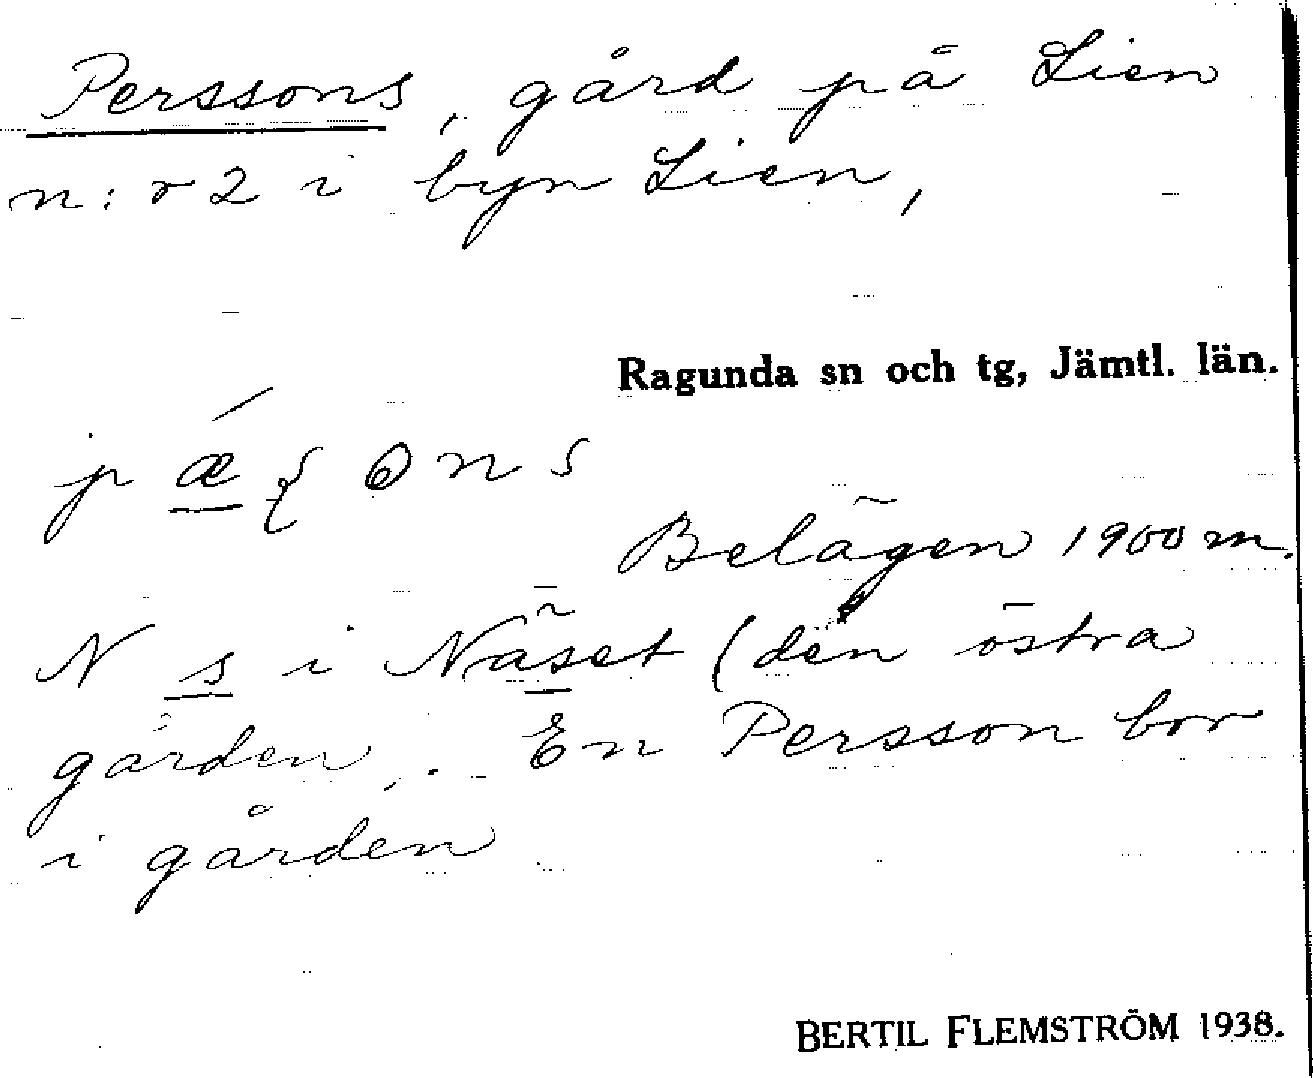 Persons, gård på Lien
n:r 2 i byn Lien,
Ragunda sn och tg, Jämtl. län.
Belägen 1900 m.
N s i Näset (den östra
gården. En Persson bor
i gården
BERTIL FLEMSTRÖM 1938.